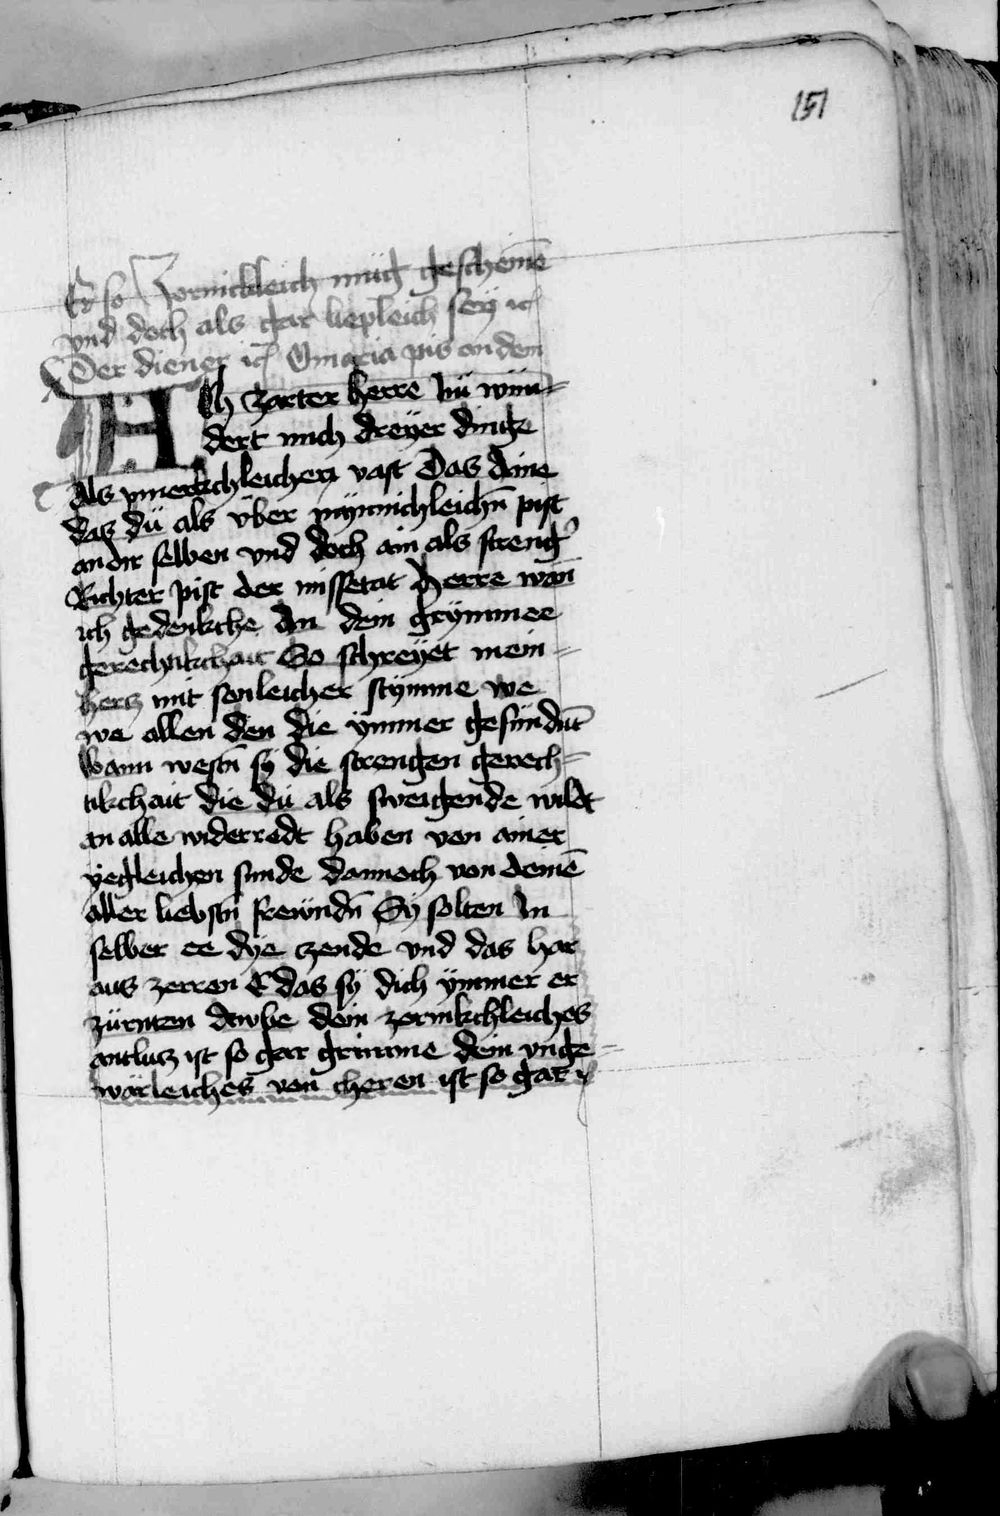 151
Er so Zornickleich müg geschein̄e
vnd doch als gar liepleich sey ꝛc
Der diener ꝛc O maria pis an dem
ACh zarter herre Nu wün-
dert mich dreyer dinge
Als vnmerkchleichen vast Das Aine
das dü als über mynnichleichn̄ pist
an dir selben vnd doch ain als streng
Richter pist der missetat Herre wan̄
ich gedenkche An dein grymmee
gerechtikchait So schreyet mein-
hertz mit senleicher stymme we
we allen den die ymmer gesündnt̄
Wann westn̄ sy die strengen gerech-
tikchait die dü als sweigende wildt
an alle widerredt haben von ainer
yegleichen sunde dannoch von dein̄e
aller liebstn̄ frewndn̄ Sy solten In
selber ee dye zende vnd das har
aus zerren E das sy dich ymmer er
zürnten dein zornikchleiches
antlutz ist so gar grimme dein vnge-
wärleiches von cheren ist so gar